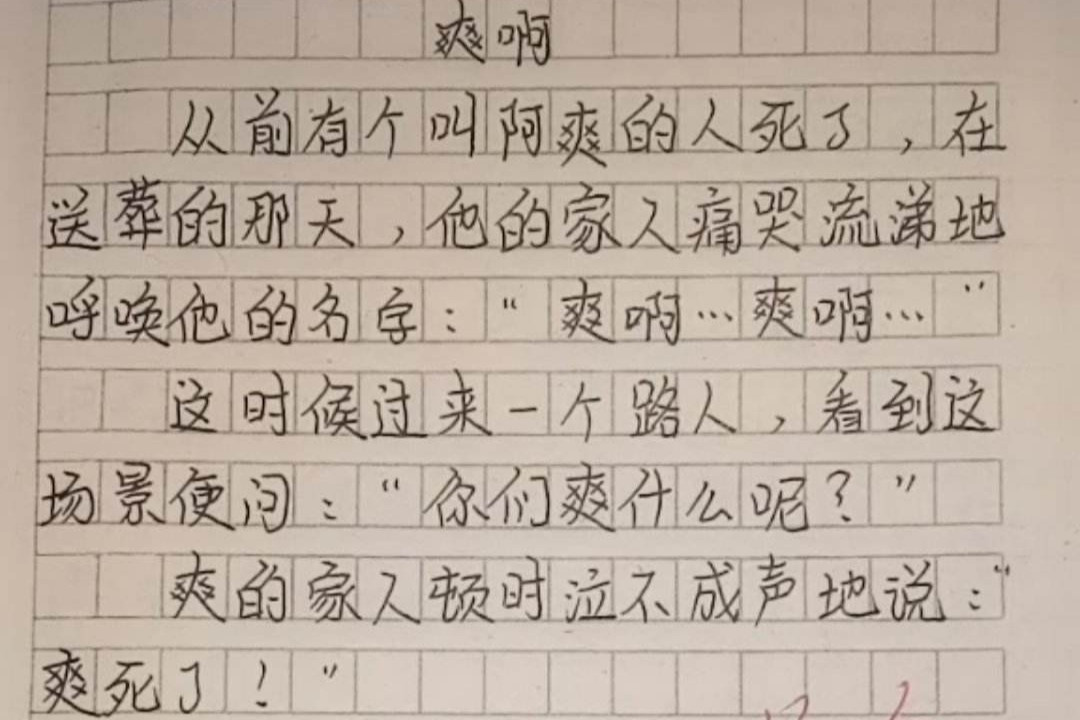 爽啊
从前有个叫阿爽的人死了，在
送葬的那天，他的家人痛哭流涕地
呼唤他的名字：“爽啊…爽啊…”
这时候过来一个路人，看到这
场景便问：“你们爽什么呢？”
爽的家人顿时泣不成声地说：“
爽死了！”